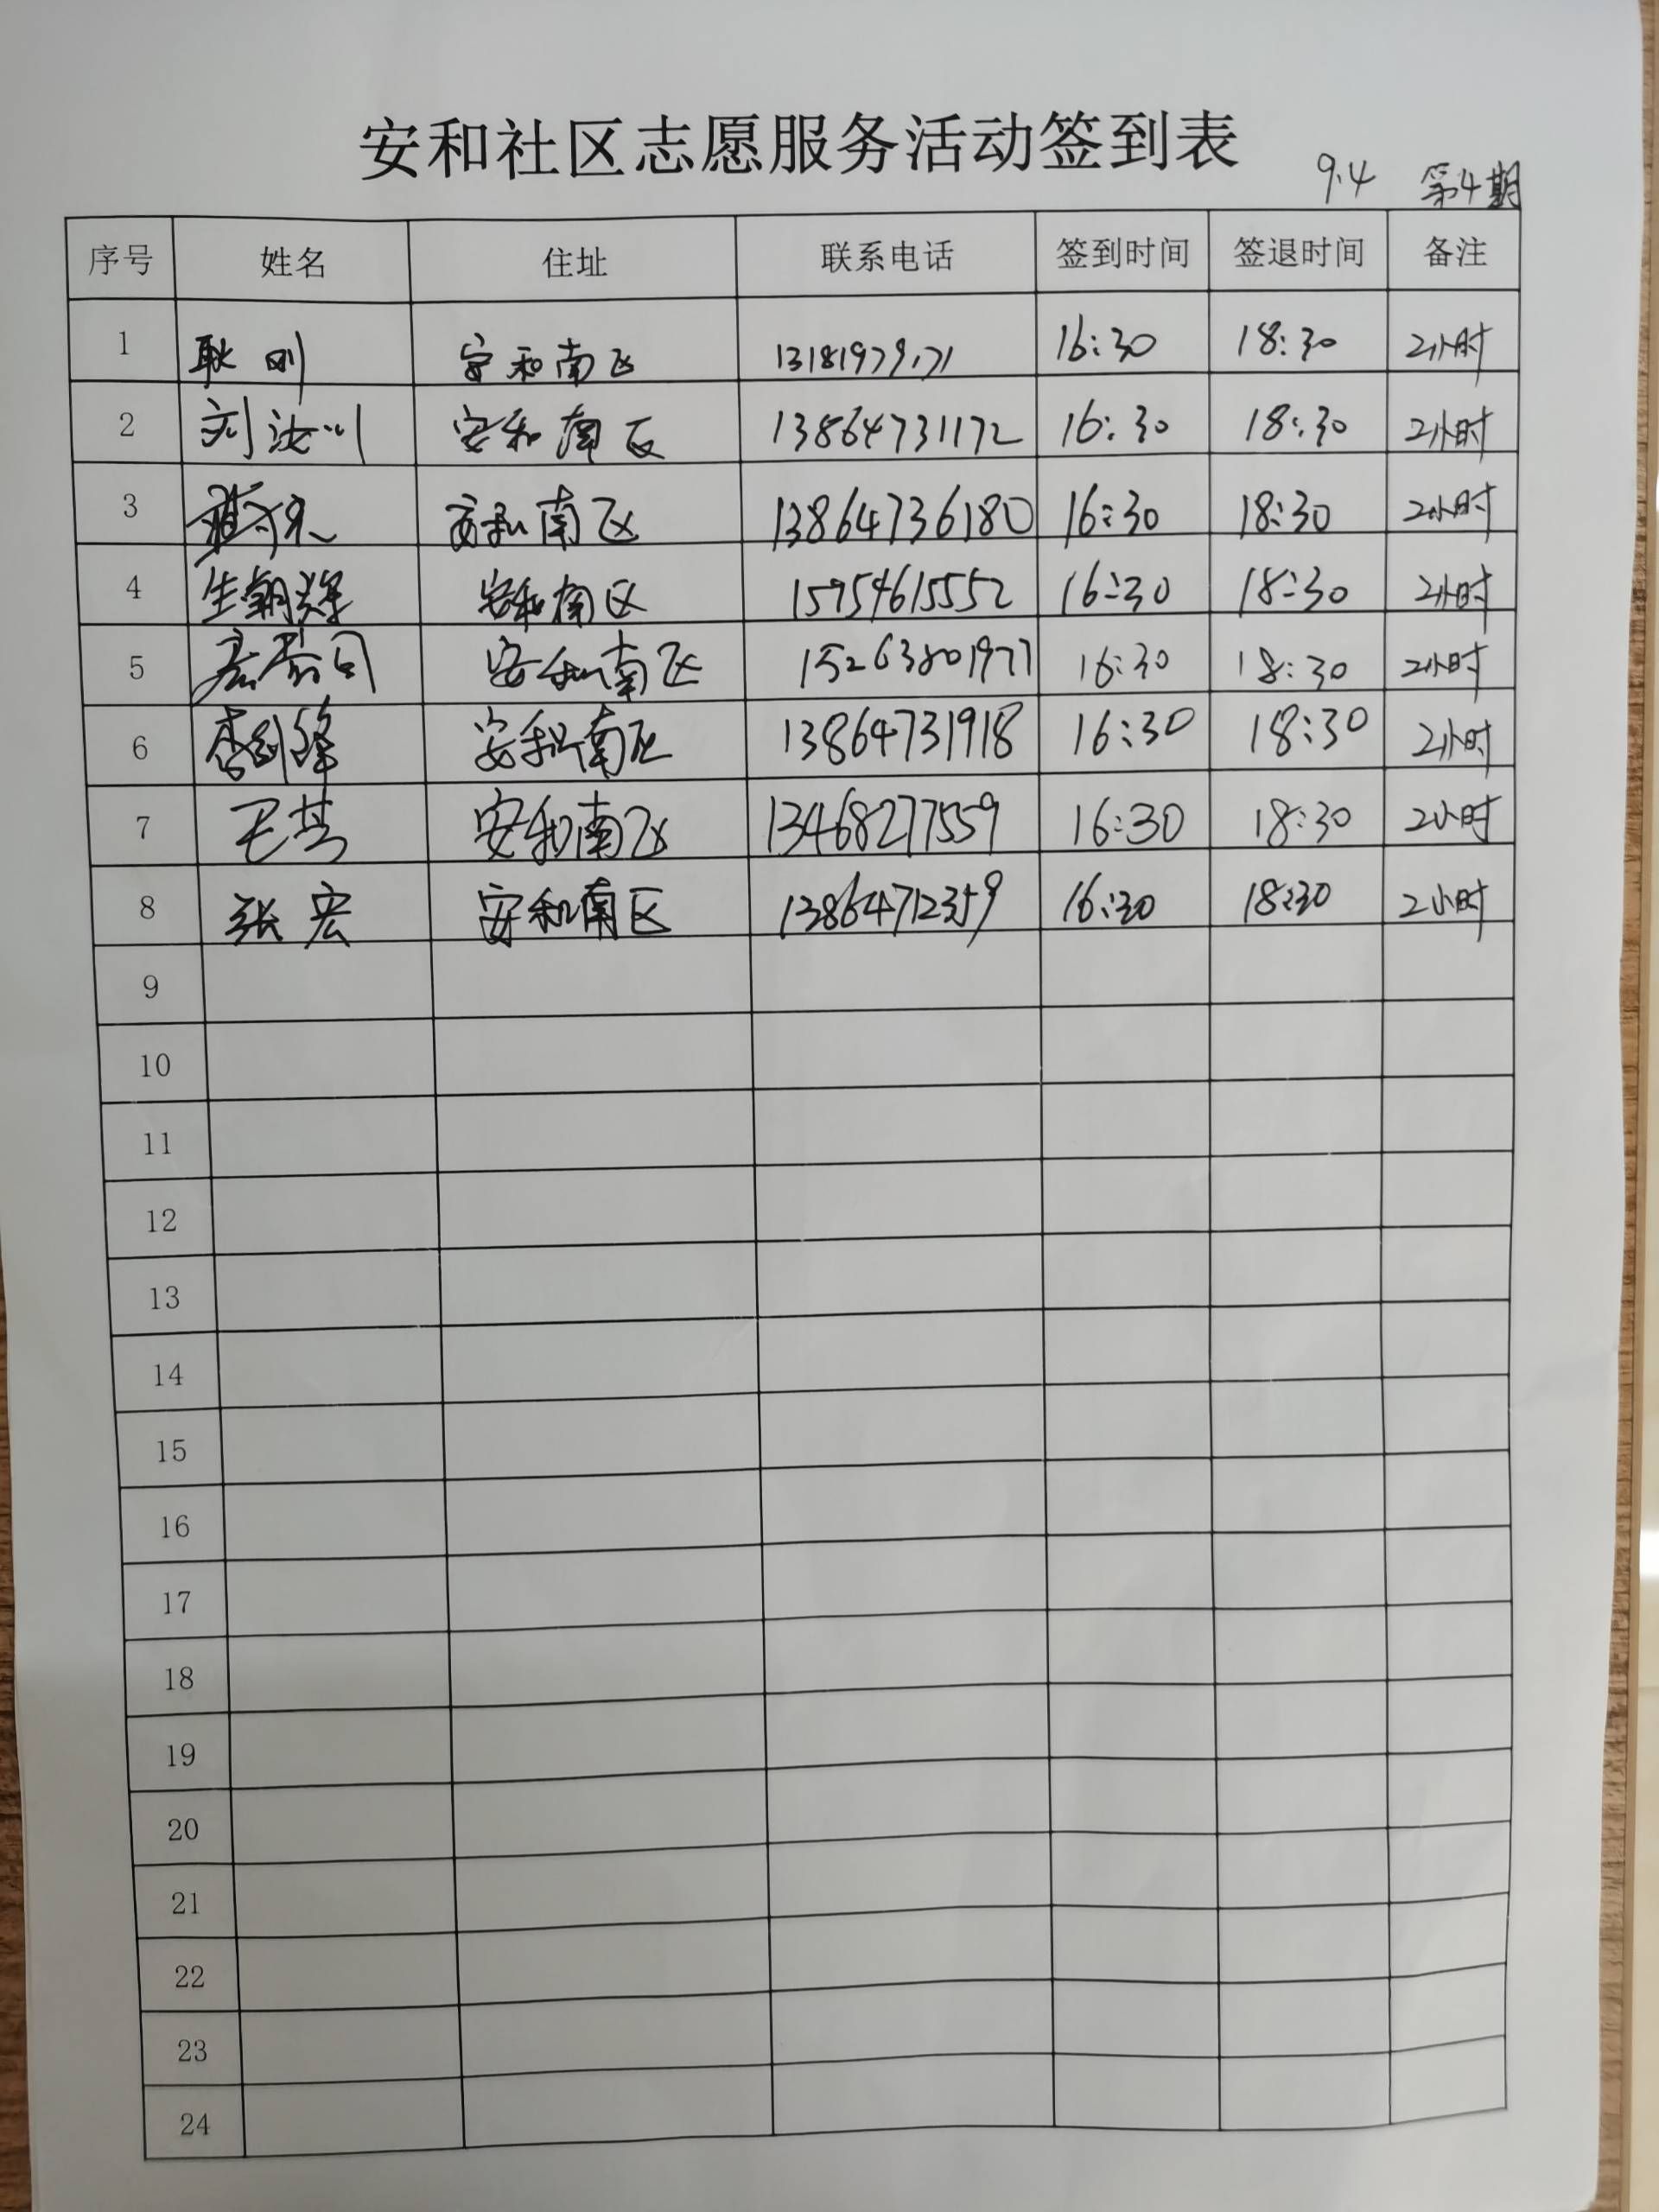 安和社区志愿服务活动签到表
9.4 第4期
序号 姓名 住址 联系电话 签到时间 签退时间 备注
1 耿刚 安和南区 13181979171 16:30 18:30 2小时
2 刘汝川 安和南区 13864731172 16:30 18:30 2小时
3 安和南区 13864736180 16:30 18:30 2小时
4 生朝辉 安和南区 15954615552 16:30 18:30 2小时
5 安和南区 15263801977 16:30 18:30 2小时
6 李剑锋 安和南区 13864731918 16:30 18:30 2小时
7 安和南区 13468277559 16:30 18:30 2小时
8 张宏 安和南区 13864712359 16:30 18:30 2小时
9
10
11
12
13
14
15
16
17
18
19
20
21
22
23
24